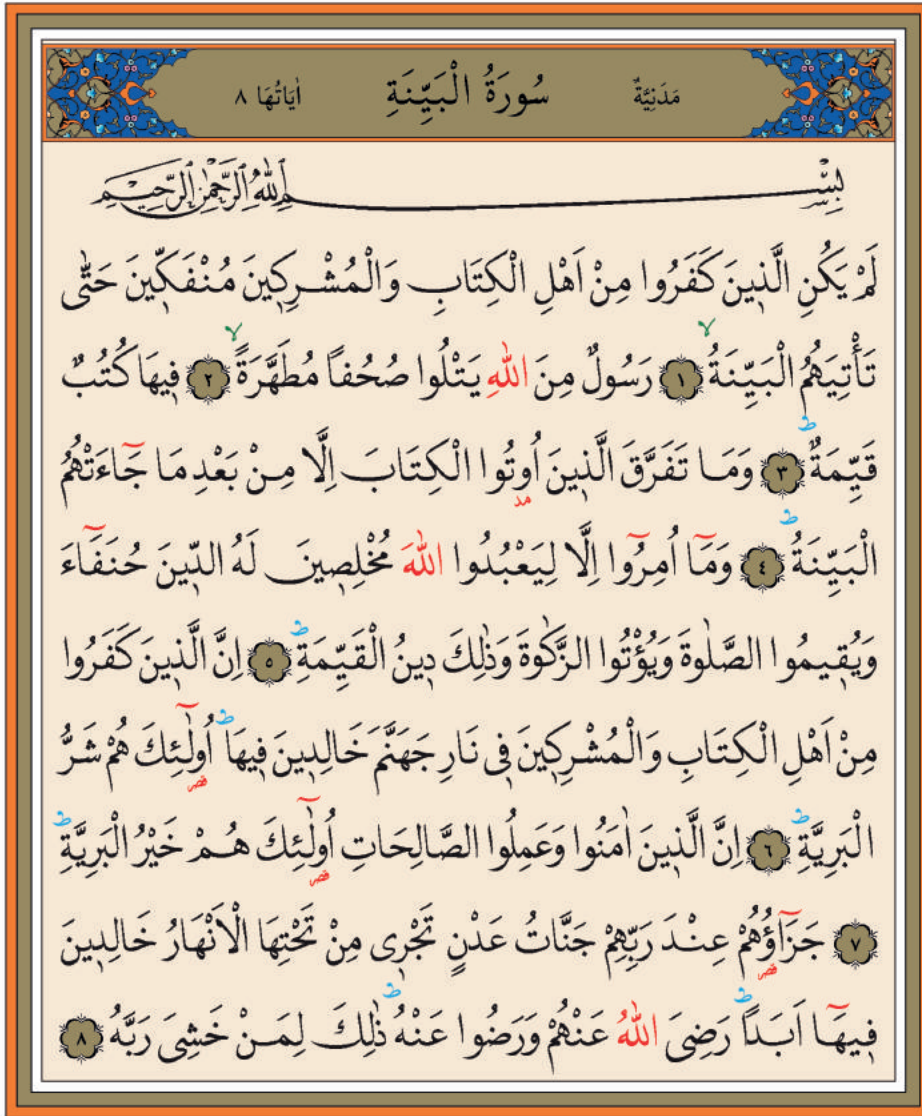 مَدَنِيَّةٌ سُورَةُ الْبَيِّنَةِ اٰيَاتُهَا ٨
بِسْمِ اللّٰهِ الرَّحْمٰنِ الرَّحِيمِ
لَمْ يَكُنِ الَّذ۪ينَ كَفَرُوا مِنْ اَهْلِ الْكِتَابِ وَالْمُشْرِك۪ينَ مُنْفَكّ۪ينَ حَتّٰى
تَأْتِيَهُمُ الْبَيِّنَةُۙ ﴿١﴾ رَسُولٌ مِنَ اللّٰهِ يَتْلُوا صُحُفاً مُطَهَّرَةًۙ ﴿٢﴾ ف۪يهَا كُتُبٌ
قَيِّمَةٌۜ ﴿٣﴾ وَمَا تَفَرَّقَ الَّذ۪ينَ اُو۫تُوا الْكِتَابَ اِلَّا مِنْ بَعْدِ مَا جَٓاءَتْهُمُ
الْبَيِّنَةُۜ ﴿٤﴾ وَمَٓا اُمِرُٓوا اِلَّا لِيَعْبُدُوا اللّٰهَ مُخْلِص۪ينَ لَهُ الدّ۪ينَ حُنَفَٓاءَ
وَيُق۪يمُوا الصَّلٰوةَ وَيُؤْتُوا الزَّكٰوةَ وَذٰلِكَ د۪ينُ الْقَيِّمَةِۜ ﴿٥﴾ اِنَّ الَّذ۪ينَ كَفَرُوا
مِنْ اَهْلِ الْكِتَابِ وَالْمُشْرِك۪ينَ ف۪ي نَارِ جَهَنَّمَ خَالِد۪ينَ ف۪يهَاۜ اُو۬لٰٓئِكَ هُمْ شَرُّ
الْبَرِيَّةِۜ ﴿٦﴾ اِنَّ الَّذ۪ينَ اٰمَنُوا وَعَمِلُوا الصَّالِحَاتِ اُو۬لٰٓئِكَ هُمْ خَيْرُ الْبَرِيَّةِۜ
﴿٧﴾ جَزَٓاؤُ۬هُمْ عِنْدَ رَبِّهِمْ جَنَّاتُ عَدْنٍ تَجْر۪ي مِنْ تَحْتِهَا الْاَنْهَارُ خَالِد۪ينَ
ف۪يهَٓا اَبَداًۜ رَضِيَ اللّٰهُ عَنْهُمْ وَرَضُوا عَنْهُۜ ذٰلِكَ لِمَنْ خَشِيَ رَبَّهُ ﴿٨﴾